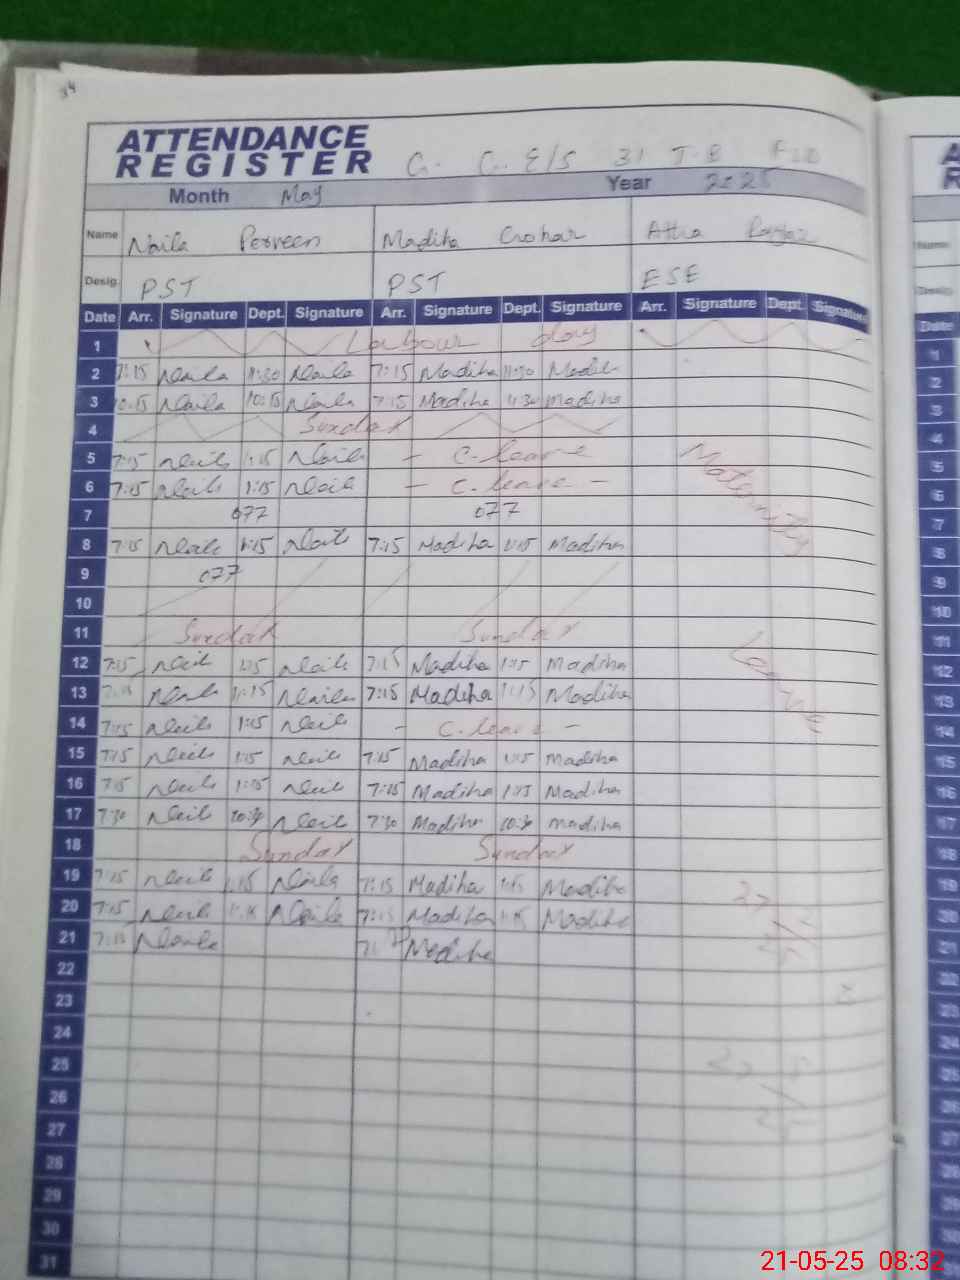 ATTENDANCE
REGISTER G. G. E/S 31 T-B
Month May Year 2025
Name Naila Perveen Madiha Gohar Attia
Desig. PST PST ESE
Date Arr. Signature Dept. Signature Arr. Signature Dept. Signature Arr. Signature Dept. Signature
1 Labour day
2 7:15 Naila 11:30 Naila 7:15 Madiha 11:30 Madih
3 10:15 Naila 10:15 Naila 7:15 Madiha 11:30 Madiha
4 Sunday
5 7:15 Naila 1:15 Naila - C-leave
6 7:15 Naila 1:15 Naila - C-leave -
7 077 077
8 7:15 Naila 1:15 Naila 7:15 Madiha 1:15 Madiha
9 077
10
11 Sunday Sunday
12 7:15 Naila 1:15 Naila 7:15 Madiha 1:15 Madiha
13 7:15 Naila 1:15 Naila 7:15 Madiha 1:15 Madiha
14 7:15 Naila 1:15 Naila - C-leave -
15 7:15 Naila 1:15 Naila 7:15 Madiha 1:15 Madiha
16 7:15 Naila 1:15 Naila 7:15 Madiha 1:15 Madiha
17 7:30 Naila 10:30 Naila 7:30 Madiha 10:30 Madiha
18 Sunday Sunday
19 7:15 Naila 1:15 Naila 7:15 Madiha 1:15 Madiha
20 7:15 Naila 1:15 Naila 7:15 Madiha 1:15 Madiha
21 7:15 Naila Madiha
22
23
24
25
26
27
28
29
30
31
Maternity
Leave
21-05-25 08:32